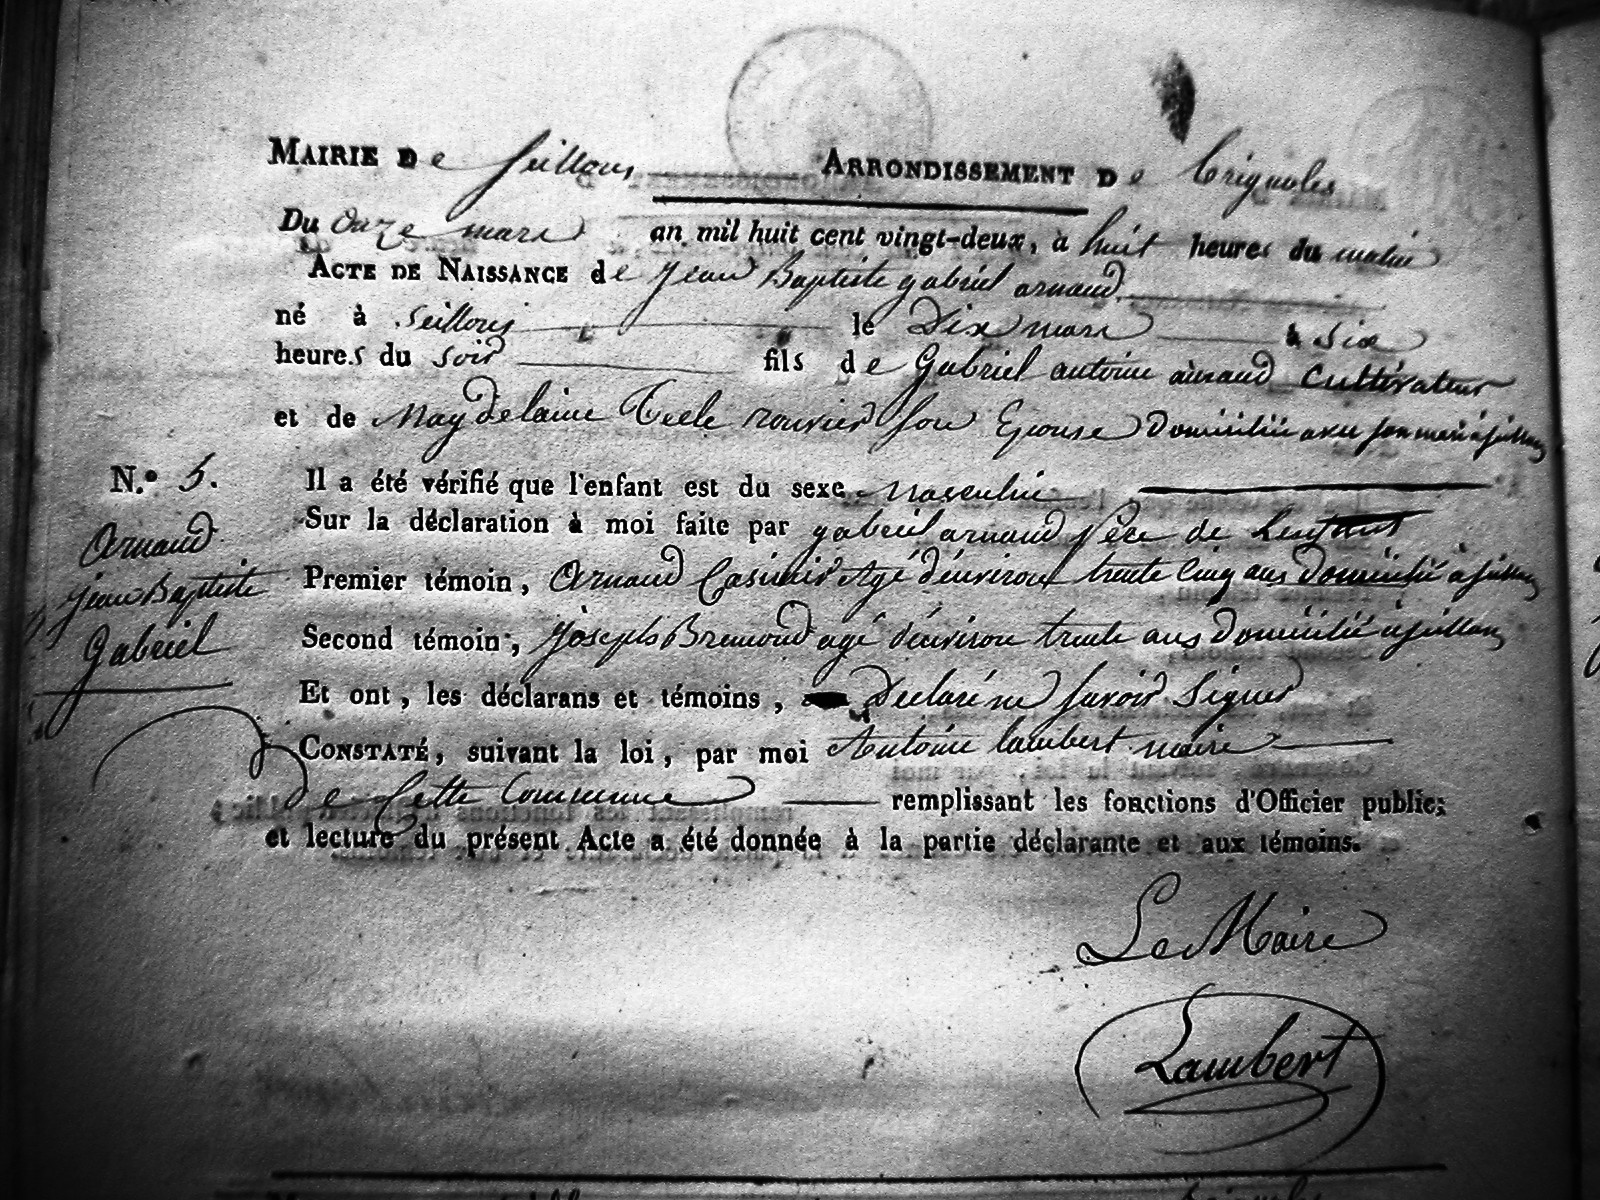 MAIRIE De Seillons ARRONDISSEMENT De Brignoles
Du onze mars an mil huit cent vingt-deux, à huit heures du matin
ACTE DE NAISSANCE de Jean Baptiste gabriel arnaud
né à Seillons le Dix mars à Six
heures du Soir fils de Gabriel antoine arnaud Cultivateur
et de Magdelaine rouvier Son Epouse Domiciliée avec son mari à Seillons
N.º 5.
Arnaud
jean Baptiste
Gabriel
Il a été vérifié que l'enfant est du sexe Masculin
Sur la déclaration à moi faite par gabriel arnaud Père de Lenfant
Premier témoin, Arnaud Casimir Agé d'environ trente Cinq ans Domicilié à Seillons
Second témoin, Joseph Bremond agé d'environ trente ans Domicilié à Seillons
Et ont, les déclarans et témoins, Declaré ne Savoir Signer
CONSTATÉ, suivant la loi, par moi Antoine lambert maire
De Cette Commune remplissant les fonctions d'Officier public;
et lecture du présent Acte a été donnée à la partie déclarante et aux témoins.
Le Maire
Lambert